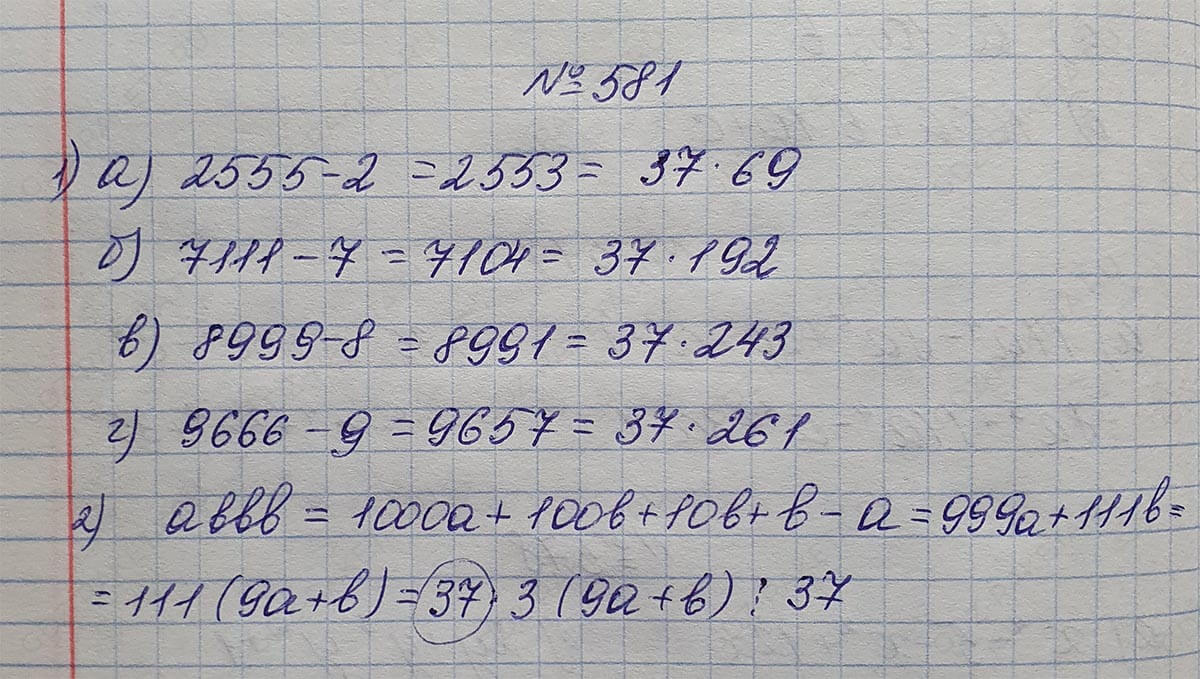 № 581
1) а) 2555-2 = 2553 = 37·69
б) 7111-7 = 7104 = 37·192
в) 8999-8 = 8991 = 37·243
г) 9666-9 = 9657 = 37·261
2) аввв = 1000а+100в+10в+в-а = 999а+111в=
= 111(9а+в) = 37·3(9а+в) ⋮ 37